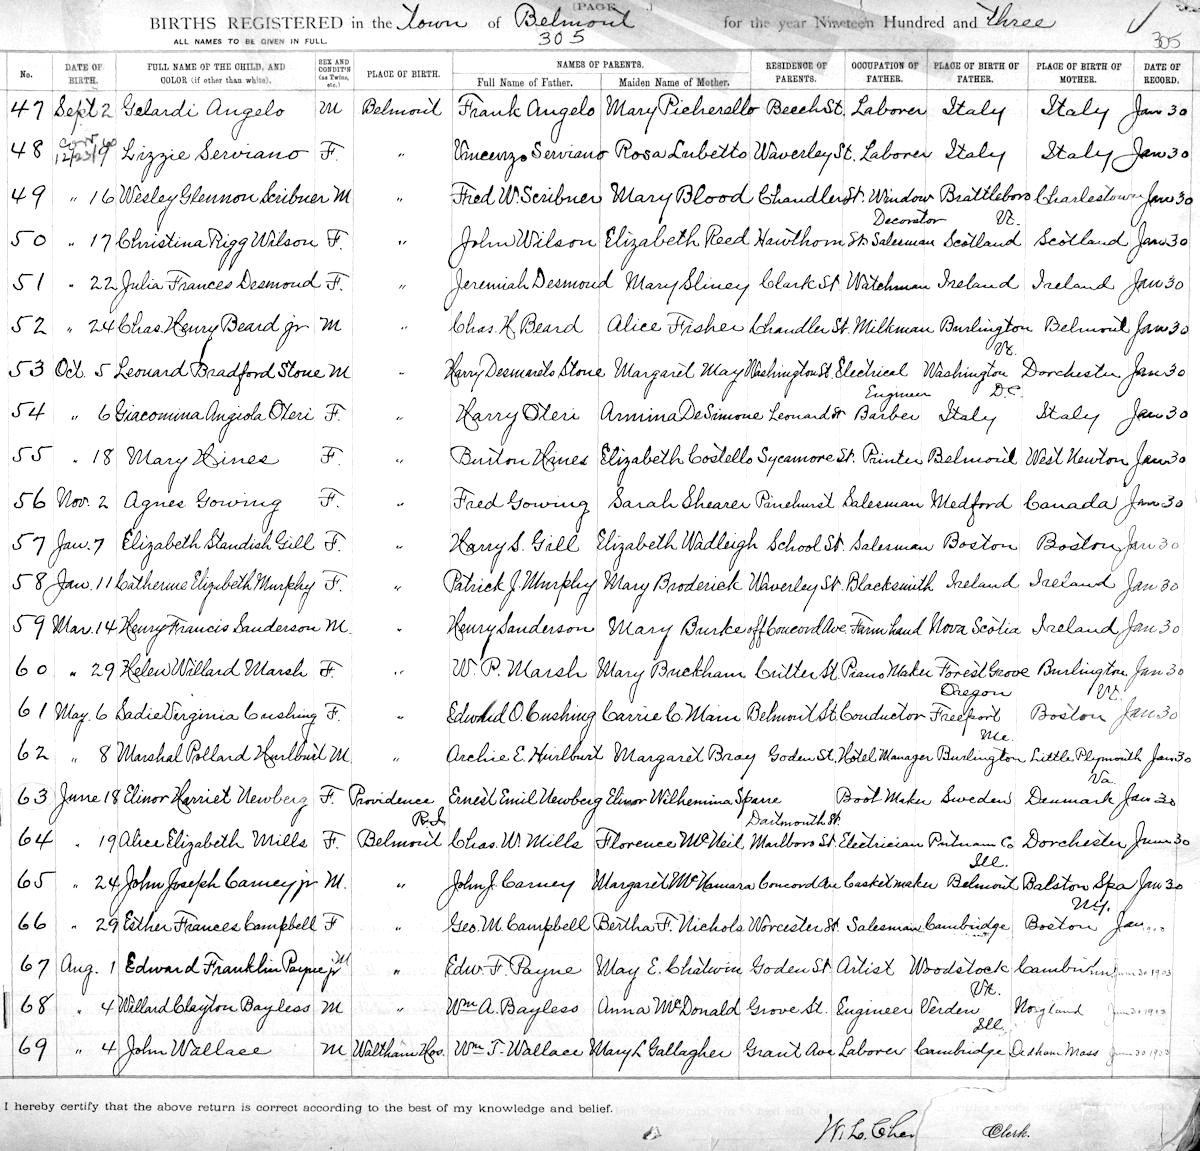 (PAGE )
BIRTHS REGISTERED in the Town of Belmont for the year Nineteen Hundred and three
305
305
ALL NAMES TO BE GIVEN IN FULL.
No. DATE OF BIRTH. FULL NAME OF THE CHILD, AND COLOR (if other than white). SEX AND CONDIT'N (as Twins, etc.) PLACE OF BIRTH. NAMES OF PARENTS. Full Name of Father. Maiden Name of Mother. RESIDENCE OF PARENTS. OCCUPATION OF FATHER. PLACE OF BIRTH OF FATHER. PLACE OF BIRTH OF MOTHER. DATE OF RECORD.
47 Sept 2 Gelardi Angelo M Belmont Frank Angelo Mary Picherello Beech St. Laborer Italy Italy Jan 30
48 12/23/ 9 Lizzie Serviano F. " Vincenzo Serviano Rosa Lubetto Waverley St. Laborer Italy Italy Jan 30
49 " 16 Wesley Glennon Scribner M " Fred W. Scribner Mary Blood Chandler St. Window Decorator Brattleboro Vt. Charlestown Jan 30
50 " 17 Christina Rigg Wilson F. " John Wilson Elizabeth Reed Hawthorn St. Salesman Scotland Scotland Jan 30
51 " 22 Julia Frances Desmond F. " Jeremiah Desmond Mary Sliney Clark St Watchman Ireland Ireland Jan 30
52 " 24 Chas. Henry Beard jr M " Chas. H. Beard Alice Fisher Chandler St. Milkman Burlington Vt. Belmont Jan 30
53 Oct. 5 Leonard Bradford Stone M " Harry Desmarets Stone Margaret May Washington St. Electrical Engineer Washington D.C. Dorchester Jan 30
54 " 6 Giacomina Angiola Oteri F. " Harry Oteri Armina DeSimone Leonard St Barber Italy Italy Jan 30
55 " 18 Mary Hines F. " Burton Hines Elizabeth Costello Sycamore St. Printer Belmont West Newton Jan 30
56 Nov. 2 Agnes Gowing F. " Fred Gowing Sarah Shearer Pinehurst Salesman Medford Canada Jan 30
57 Jan. 7 Elizabeth Standish Gill F. " Harry S. Gill Elizabeth Wadleigh School St. Salesman Boston Boston Jan 30
58 Jan. 11 Catherine Elizabeth Murphy F. " Patrick J. Murphy Mary Broderick Waverley St. Blacksmith Ireland Ireland Jan 30
59 Mar. 14 Henry Francis Sanderson M. " Henry Sanderson Mary Burke off Concord Ave. Farm hand Nova Scotia Ireland Jan 30
60 " 29 Helen Willard Marsh F. " W. P. Marsh Mary Buckham Critter St. Piano Maker Forest Grove Oregon Burlington Vt. Jan 30
61 May. 6 Sadie Virginia Cushing F. " Edward O. Cushing Carrie C. Main Belmont St. Conductor Freeport Me. Boston Jan 30
62 " 8 Marshal Pollard Hurlburt M. " Archie E. Hurlburt Margaret Bray Goden St. Hotel Manager Burlington Little Plymouth Va. Jan 30
63 June 18 Elinor Harriet Newberg F. Providence R.I. Ernest Emil Newberg Elinor Wilhemina Spane Dartmouth St. Boot Maker Sweden Denmark Jan 30
64 " 19 Alice Elizabeth Mills F. Belmont Chas. W. Mills Florence McNeil Marlboro St. Electrician Putnam Co Ill. Dorchester June 30
65 " 24 John Joseph Carney jr M. " John J. Carney Margaret McNamara Concord Ave Casket maker Belmont Balston Spa N.Y. Jan 30
66 " 29 Esther Frances Campbell F " Geo. M. Campbell Bertha F. Nichols Worcester St. Salesman Cambridge Boston Jan
67 Aug. 1 Edward Franklin Payne jr M " Edw. F. Payne May E. Chatwin Goden St. Artist Woodstock Vt. 1903
68 " 4 Willard Clayton Bayless M " Wm A. Bayless Anna McDonald Grove St. Engineer Verden Ill. 1903
69 " 4 John Wallace M Waltham Hos. Wm. T. Wallace Mary L Gallagher Grant Ave Laborer Cambridge Dedham Mass 1903
I hereby certify that the above return is correct according to the best of my knowledge and belief.
W. L. Che Clerk.